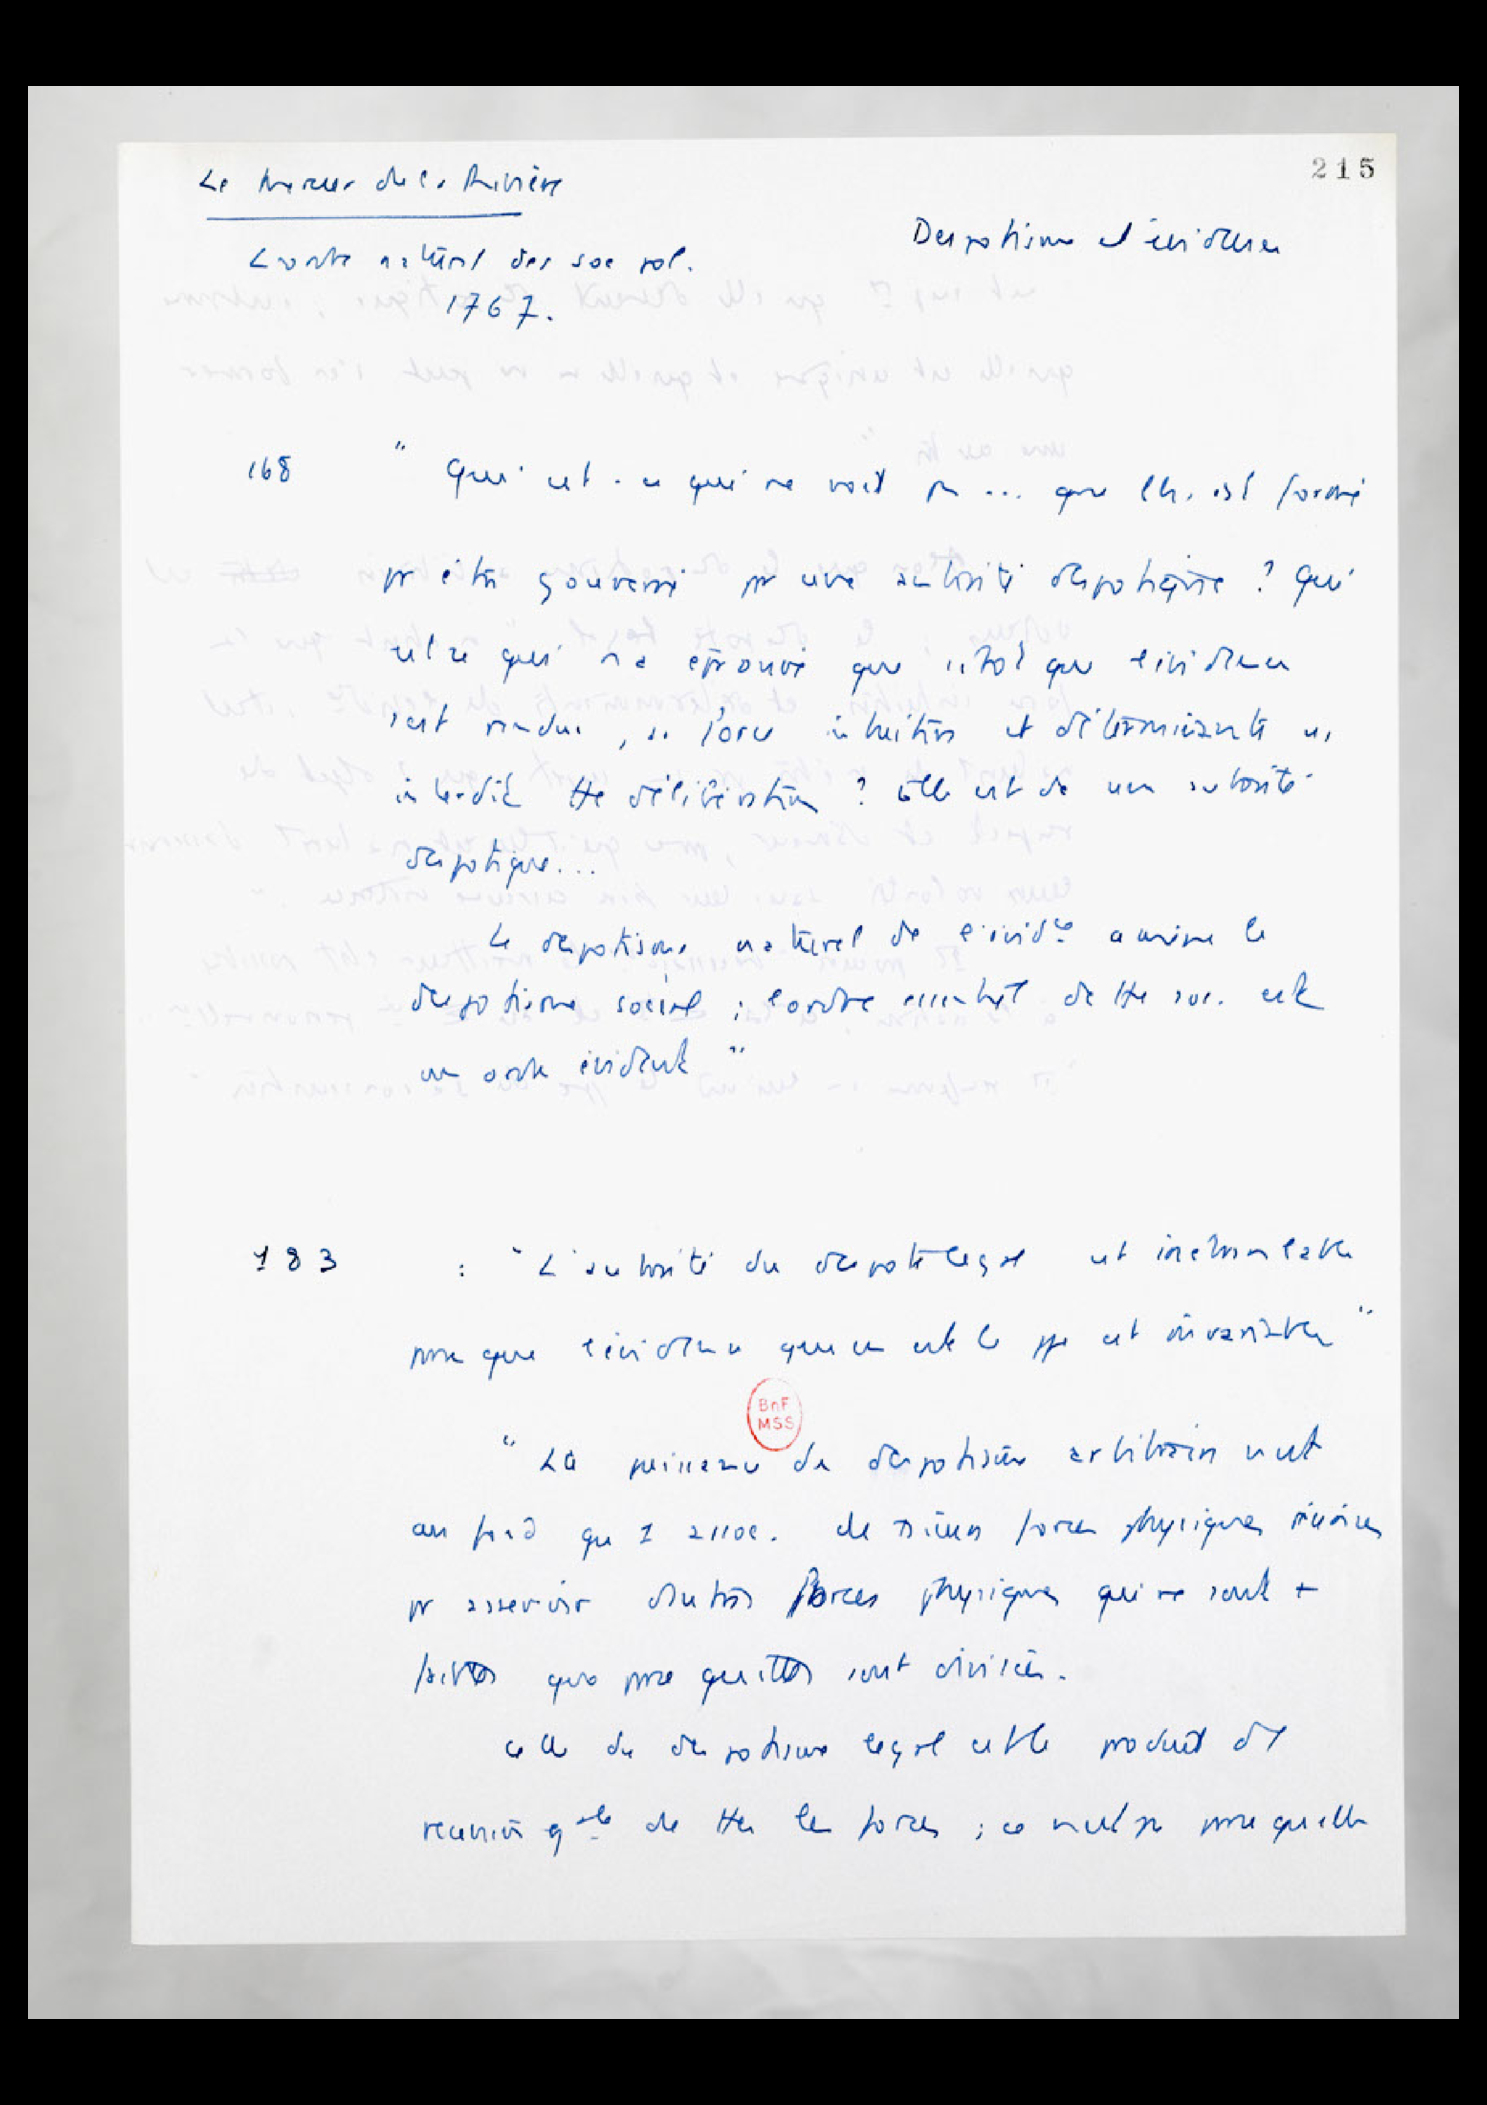 215
Le Mercier de la Rivière
Despotisme et évidence
L'ordre naturel des soc pol.
1767.
168 " Qui est-ce qui ne voit pas ... que l'h. est formé
pr être gouverné pr une autorité despotique ? Qui
est ce qui n'a éprouvé que sitôt que l'évidence
s'est rendue , sa force intuitive et déterminante ns
interdit tte délibération ? Elle est dc une autorité
despotique...
Le despotisme naturel de l'évidce amène le
despotisme social ; l'ordre essentiel de tte soc. est
un ordre évident "
183 : " L'autorité du despote légal est inébranlable
prce que l'évidence qui en est le ppe est invariable "
BnF
MSS
" La puissance du despotisme arbitraire n'est
au fond qu' 1 assoc. de plusieurs forces physiques réunies
pr asservir d'autres forces physiques qui ne sont +
faibles que prce qu'elles sont divisées.
Celle du despotisme légal est le produit d'1
réunion gale de ttes les forces ; ce n'est pas prce qu'elle